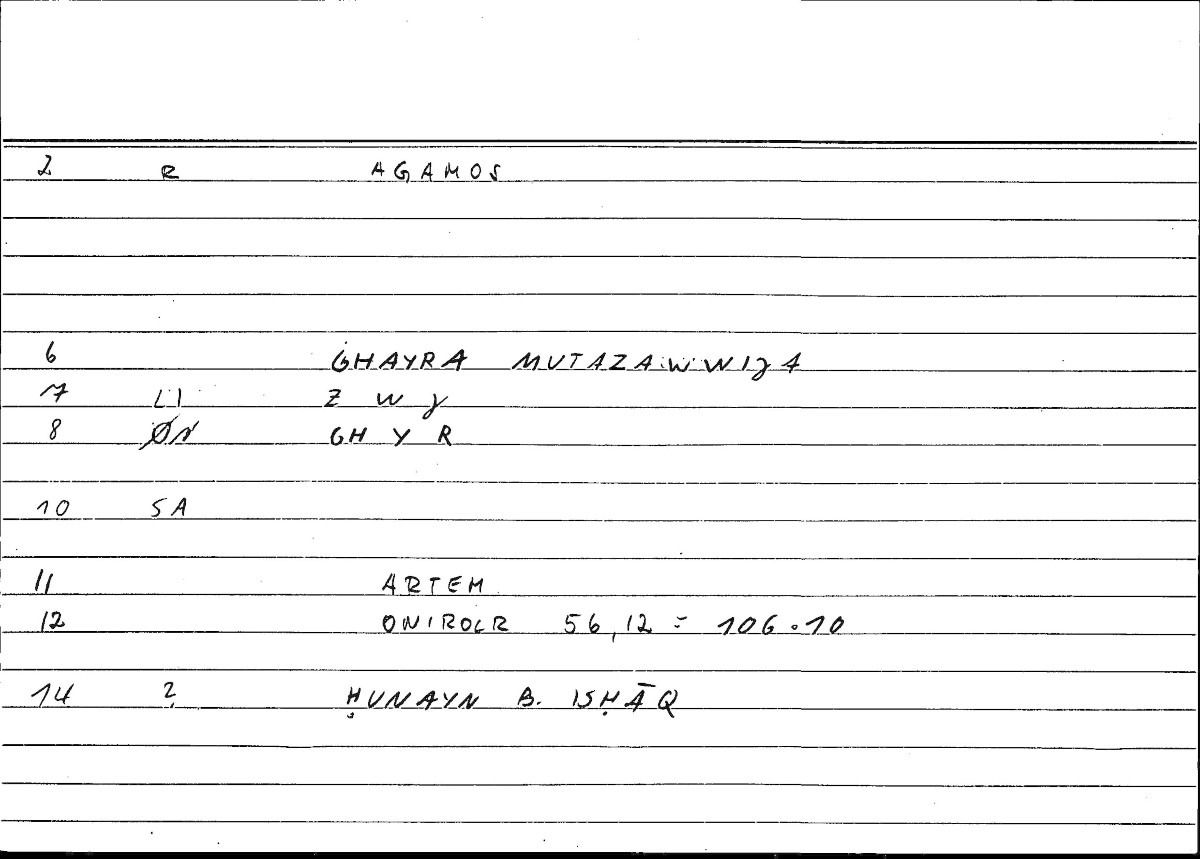 2 R AGAMOS
6 GHAYRA MUTAZAWWIJA
7 LI Z W J
8 ØN GH Y R
10 SA
11 ARTEM
12 ONIROCR 56,12 = 106.10
14 ? ḤUNAYN B. ISḤĀQ